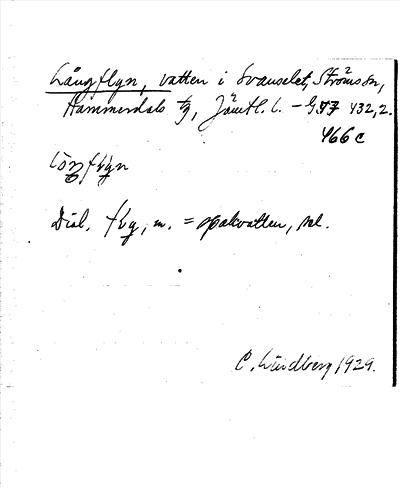 Långflyn, vatten i Svanselet, Ströms sn,
Hammerdals tg, Jämtl. l. – 432,2.
466c
Dial. m. = spakvatten, sel.
C. Lindberg 1929.